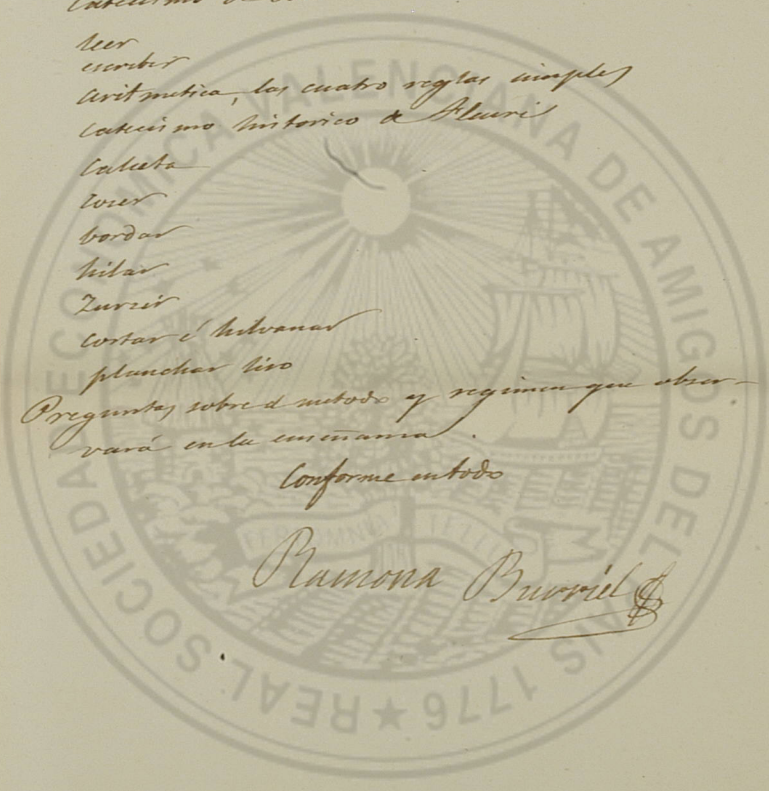 Catecismo de
leer
escribir
Aritmetica, las cuatro reglas simples
Catecismo historico de Fleuri
Calceta
Coser
bordar
hilar
Zurzir
Cortar é hilvanar
planchar liso
Preguntas sobre el metodo y regimen que obser-
vará en la enseñanza.
Conforme en todo
Ramona Burriél
REAL SOCIEDAD ECONOMICA VALENCIANA DE AMIGOS DEL PAIS 1776